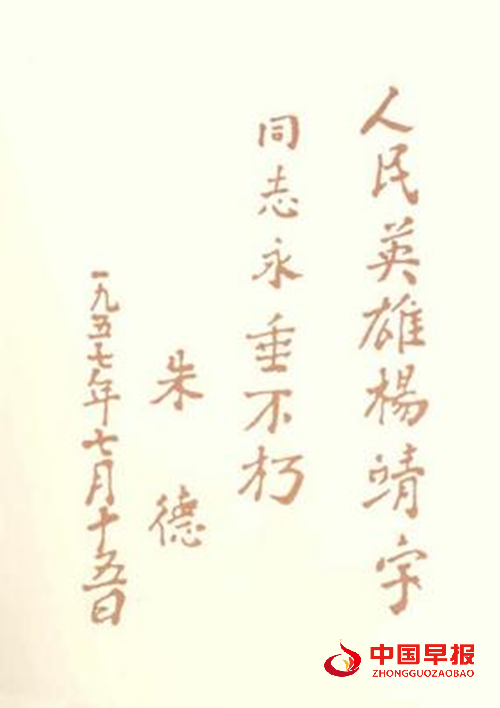 人民英雄楊靖宇
同志永垂不朽
朱德
一九五七年七月十五日
中国早报
ZHONGGUOZAOBAO